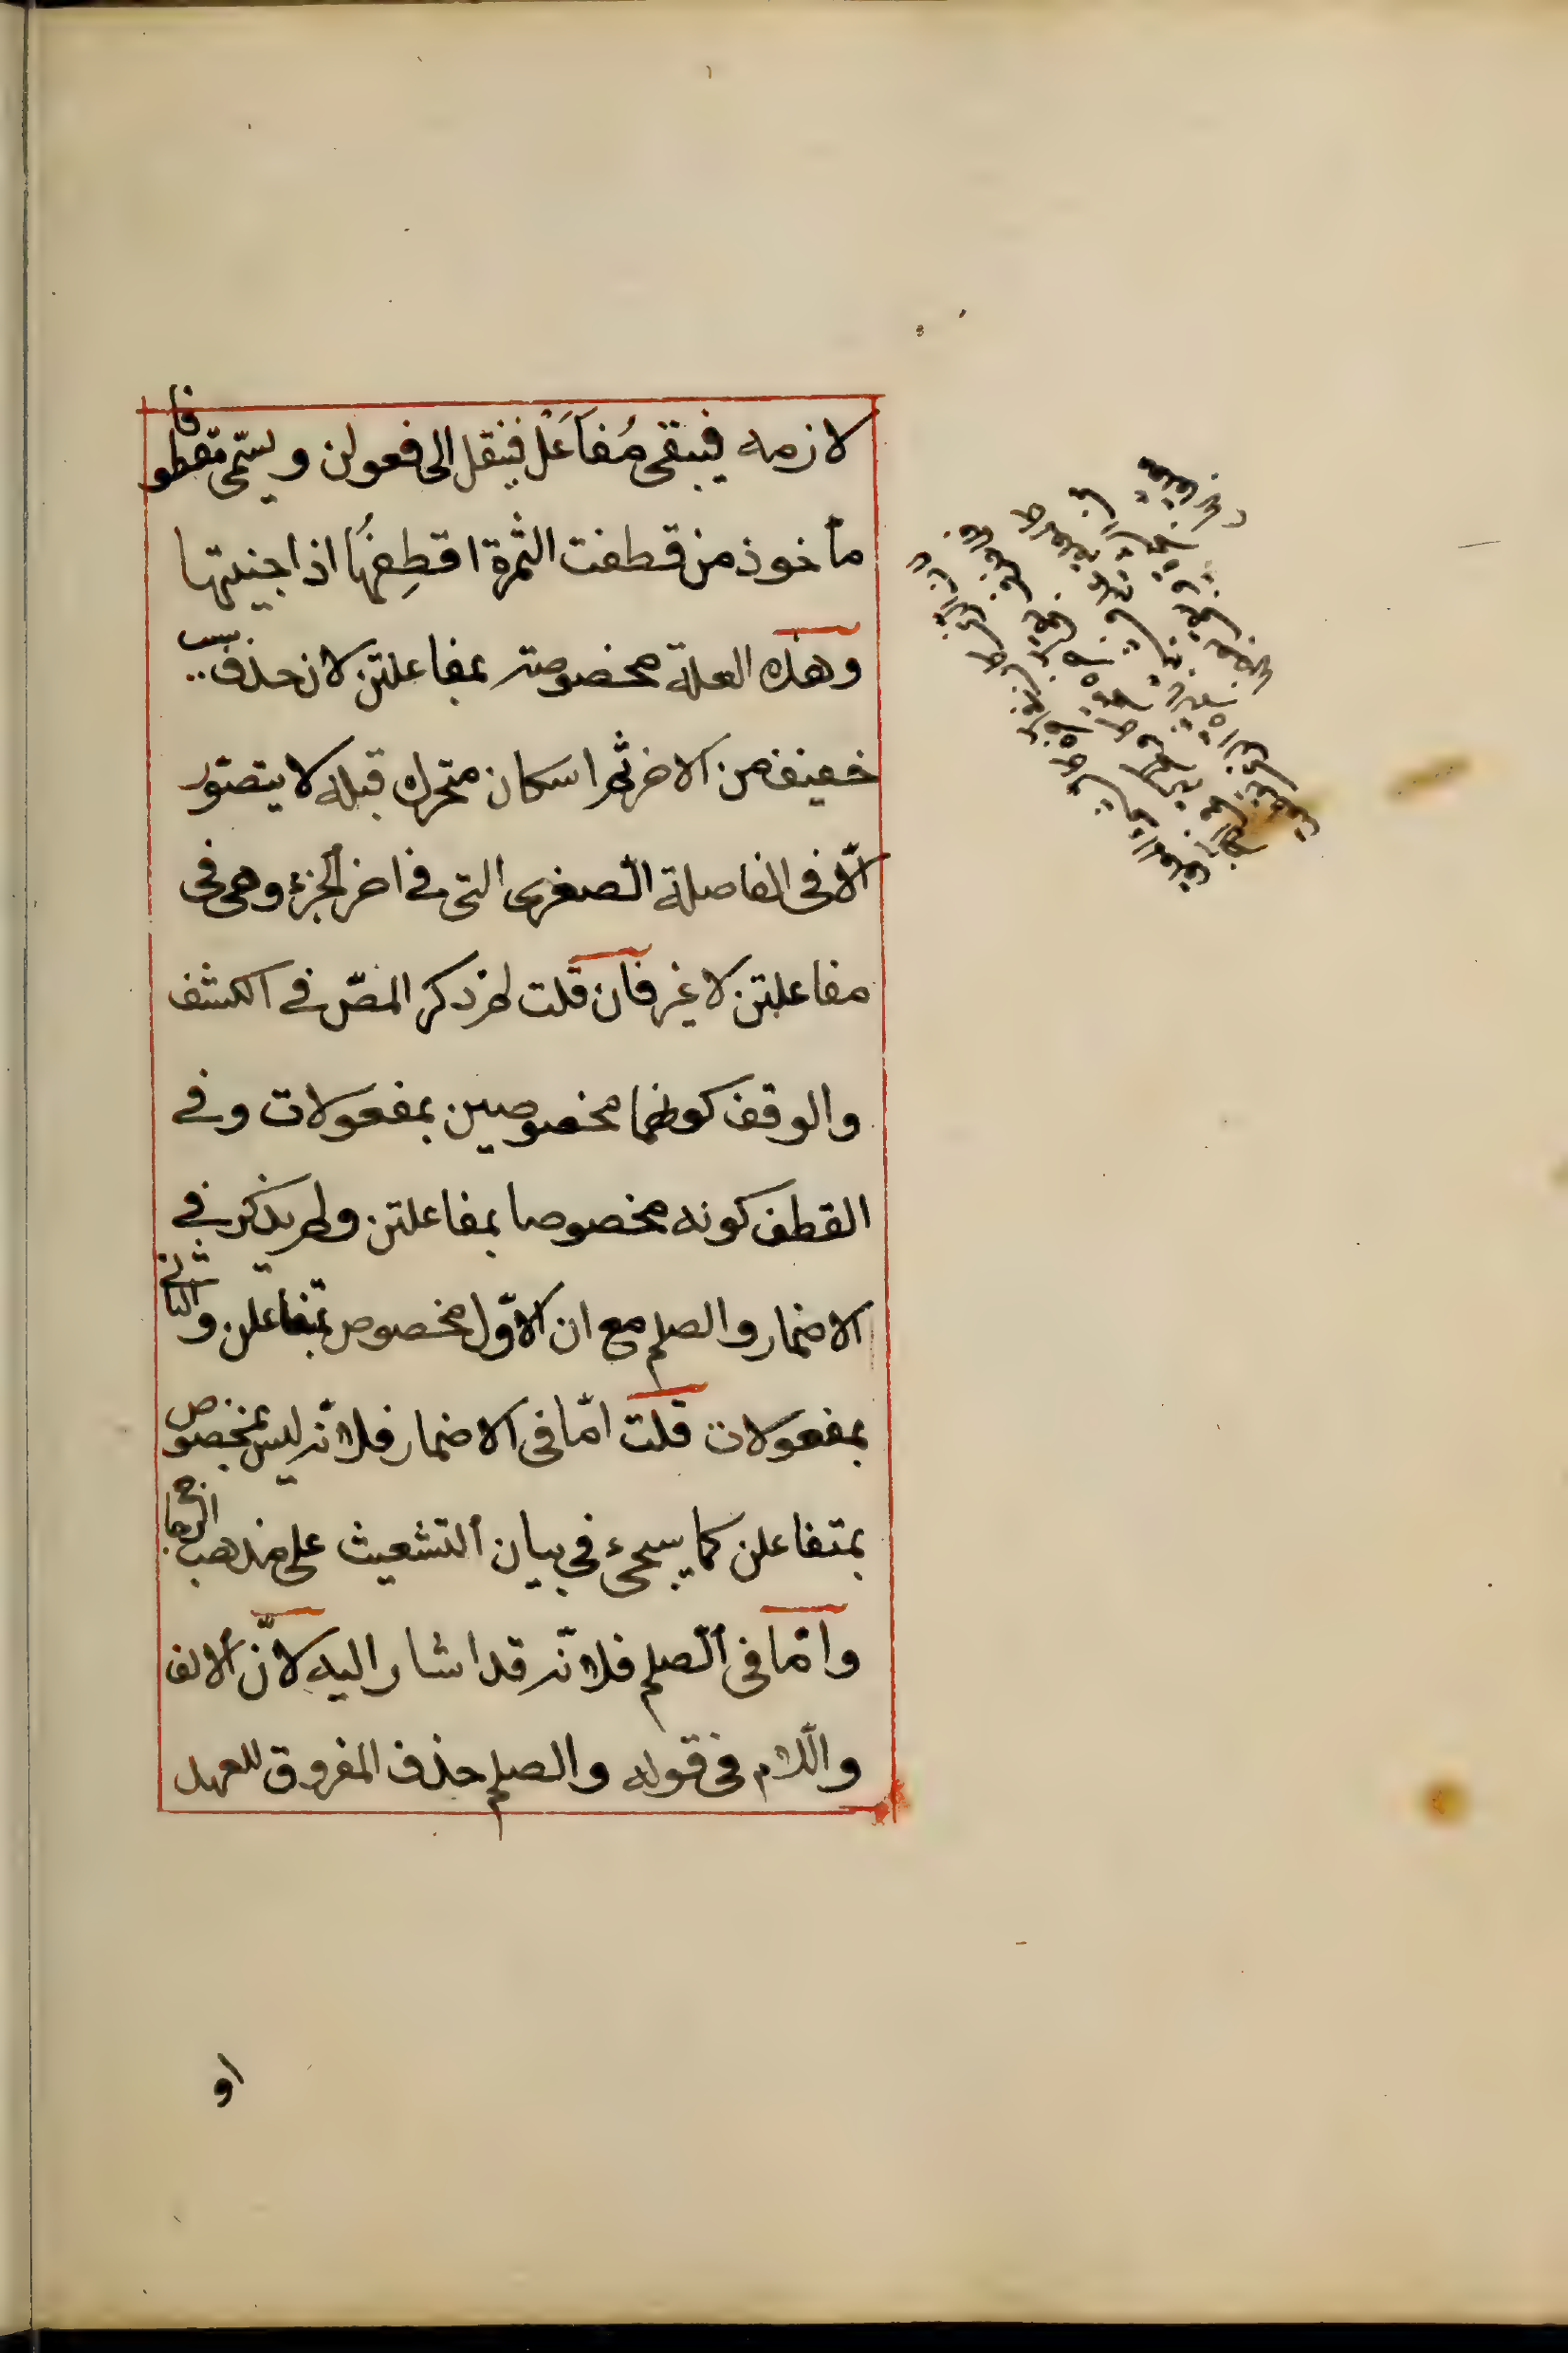 لازمه فيبقى مُفَاعَلْ فينقل الى فعولن ويسمّى مقطوفا
مأخوذ من قطفت الثمرة اقطِفهُا اذا اجنيتها
وهذه العلة مخصوصة بمفاعلتن لان حذف سبب
خفيف من الاخر ثم اسكان متحرك قبله لا يتصور
الّا فى الفاصلة الصغرى التى فى اخر الجزء وهى فى
مفاعلتن لا غير فان قلت لم ذكر المصّ فى الكشف
والوقف كونهما مخصوصين بمفعولات وفى
القطف كونه مخصوصا بمفاعلتن ولم يذكر فى
الاضمار والصلم مع ان الاوّل مخصوص بمتفاعلن والثانى
بمفعولات قلت امّا فى الاضمار فلانّه ليس بمخصوص
بمتفاعلن كما يسجىء فى بيان التشعيث على مذهب الزجاج
وامّا فى الصلم فلانّه قد اشار اليه لانّ الالف
واللام فى قوله والصلم حذف المفروق للعهد
او